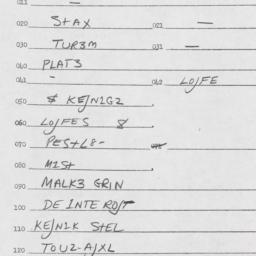 011 —
020 StAX 021 —
030 TUR3M 031 —
040 PLAT3
041 - 042 LOJFE
050 $ KEJN1GZ
060 LOJFES 8
070 PEStL8-
080 M1St
090 MALK3 GRIN
100 DE INTE ROJT
110 KEJN1K StEL
120 TOUZ-AJXL